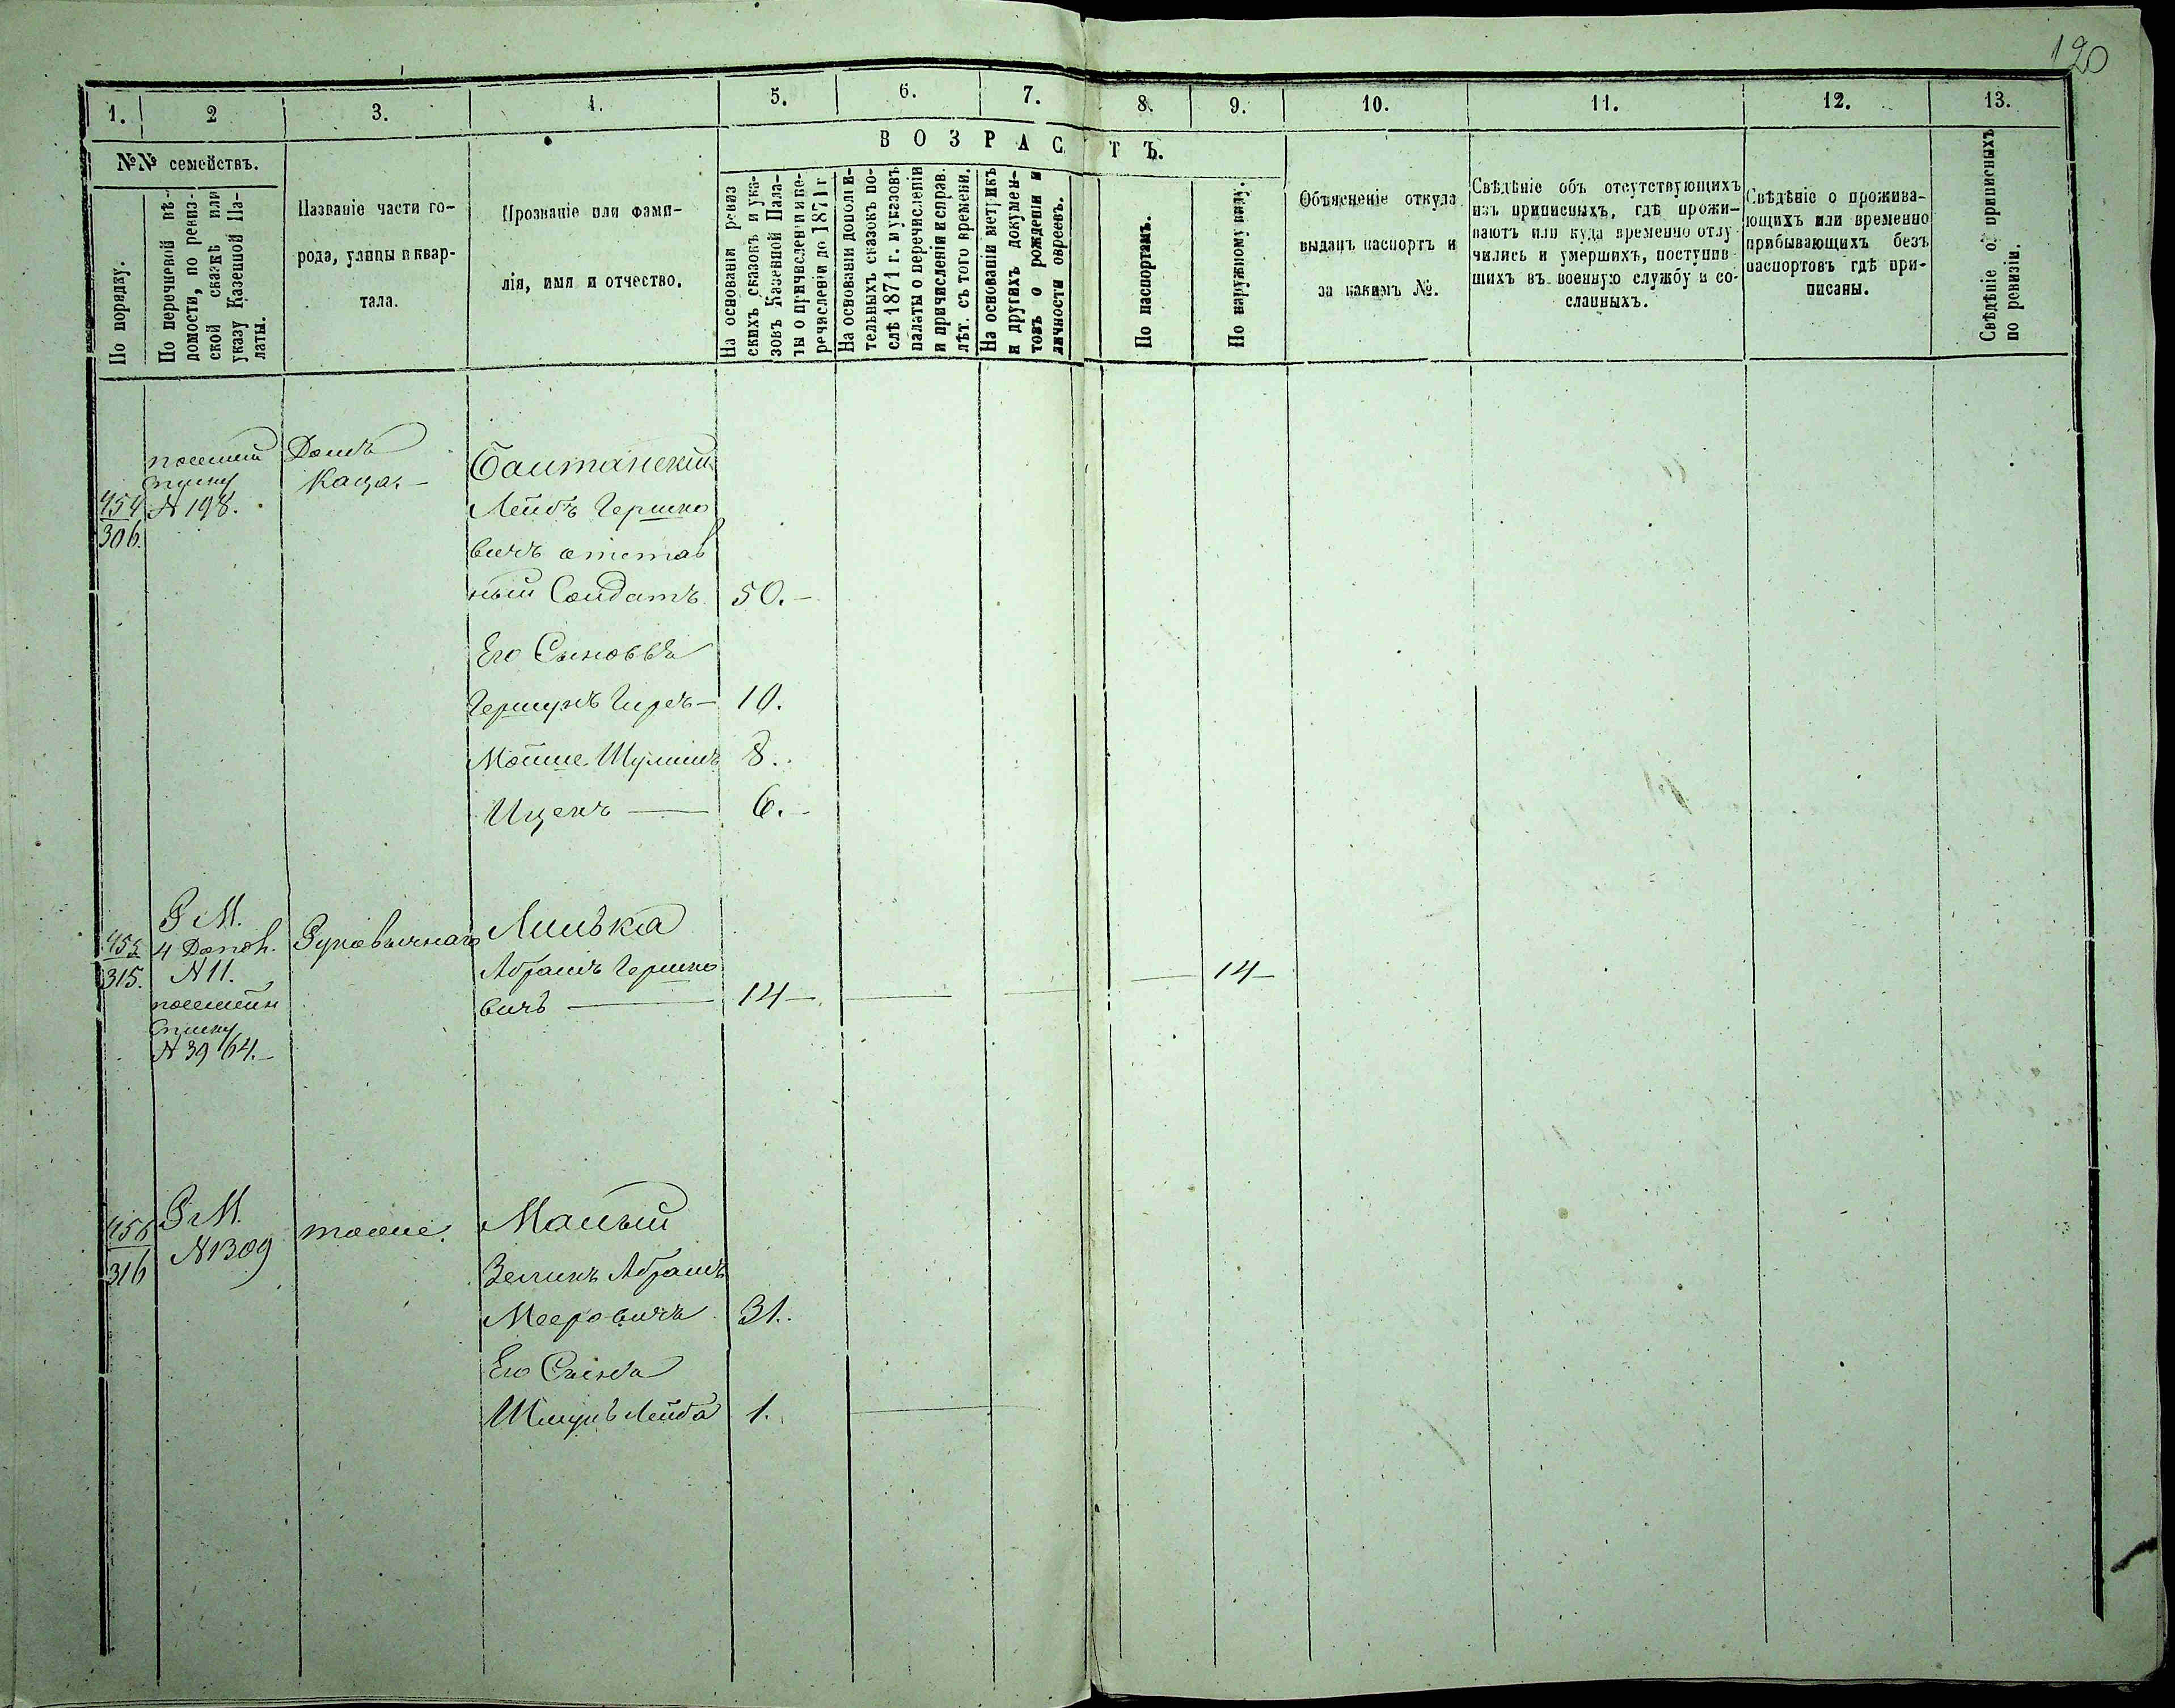 120
1.
2
3.
4.
5.
6.
7.
8.
9.
10.
11.
12.
13.
№№ семействъ.
По порядку.
По перечневой вѣ-
домости, по ревиз-
ской сказкѣ или
указу Казенной Па-
латы.
Названіе части го-
рода, улицы и квар-
тала.
Прозваніе или фами-
лія, имя и отчество.
ВОЗРАСТЪ.
На основаніи ревиз
скихъ сказокъ и ука-
зовъ Казенной Пала-
ты о причисленіи и пе-
речисленіи до 1871 г
На основаніи дополни-
тельныхъ сказокъ по-
слѣ 1871 г. и указовъ
палаты о перечисленіи
и причисленіи и справ.
лѣт. съ того времени.
На основаніи метрикъ
и другихъ докумен-
товъ о рожденіи и
личности евреевъ.
По паспортамъ.
По наружному виду.
Объясненіе откуда
выданъ паспортъ и
за какимъ №.
Свѣдѣніе объ отсутствующихъ
изъ приписныхъ, гдѣ прожи-
ваютъ или куда временно отлу-
чились и умершихъ, поступив-
шихъ въ военную службу и со-
сланныхъ.
Свѣдѣніе о прожива-
ющихъ или временно
прибывающихъ безъ
паспортовъ гдѣ при-
писаны.
Свѣдѣніе о приписныхъ
по ревизіи.
454
306.
посемей
списку
№ 198.
Домъ
Каца.
Баштанскій
Лейбъ Гершко
вичъ отстав
ный Солдатъ 50.
Его Сыновья
Гершунъ Гирсъ 10.
Мойше Шулимъ 8.
Ицекъ 6.
455
315.
Р М.
4 Допол.
№ 11.
посемейн
списку
№ 39/64.
Липька
Абрамъ Гершко
вичъ 14 14
456
316
Р М.
№ 1309
тоже.
Малый
Зеликъ Абрамъ
Мееровичъ 31.
Его Сынъ
Шмуль Лейба 1.